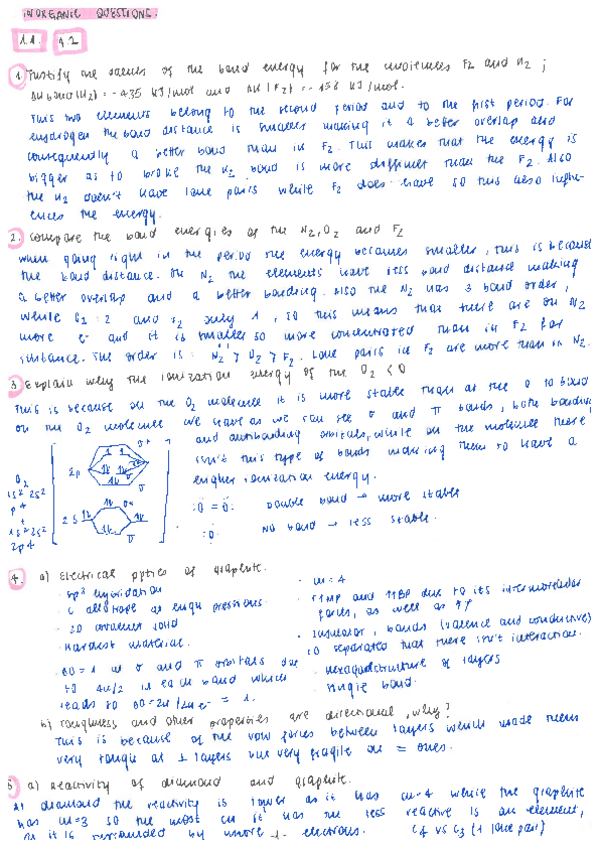 INORGANIC QUESTIONS.
1.1. 4.2
1 Justify the values of the bond energy for the molecules F2 and H2;
ΔH bond (H2) = -435 kJ/mol and ΔH (F2) = -158 kJ/mol.
This two elements belong to the second period and to the first period. For
hydrogen the bond distance is smaller making it a better overlap and
consequently a better bond than in F2. This makes that the energy is
bigger as to broke the H2 bond is more difficult than the F2. Also
the H2 doesn't have lone pairs while F2 does have so this also influ-
ences the energy.
2. Compare the bond energies of the N2, O2 and F2
When going right in the period the energy becomes smaller, this is because
the bond distance. On N2 the elements have less bond distance making
a better overlap and a better bonding. Also the N2 has 3 bond order,
while O2: 2 and F2 only 1, so this means that there are on N2
more e- and it is smaller so more concentrated than in F2 for
instance. The order is: N2 > O2 > F2. Lone pairs in F2 are more than in N2.
3 Explain why the ionization energy of the O2 < O
This is because on the O2 molecule it is more stable than at the O to bond
on the O2 molecule we have as we can see σ and π bonds, both bonding
and antibonding orbitals, while on the molecule there
isn't this type of bonds making them to have a
higher ionization energy.
:O = O: Double bond → more stable
:O: No bond → less stable.
O2
1s² 2s²
p4
+
1s² 2s²
2p4
2p
σ*
σ
2s
σ*
σ
4. a) Electrical ppties of graphite.
· sp² hybridation
· C allotrope at high pressions.
· 3D covalent solid
· Hardest material.
· BO = 1 as σ and π orbitals due
to 4e/2 in each bond which
leads to BO = 2e/2e = 1.
· cn = 4
· ↑↑MP and ↑↑BP due to its intermolecular
forces, as well as
· Insulator, bands (valence and conductive)
so separated that there isn't interaction.
· hexagonal structure of layers
· single bond.
b) Toughness and other properties are directional, why?
This is because of the VdW forces between layers which made them
very tough at ⊥ layers but very fragile on = ones.
5 a) Reactivity of diamond and graphite.
At diamond the reactivity is lower as it has cn=4 while the graphite
has cn=3 so the most cn it has the less reactive is an element,
as it is surrounded by more electrons. C4 vs C3 (1 lone pair)